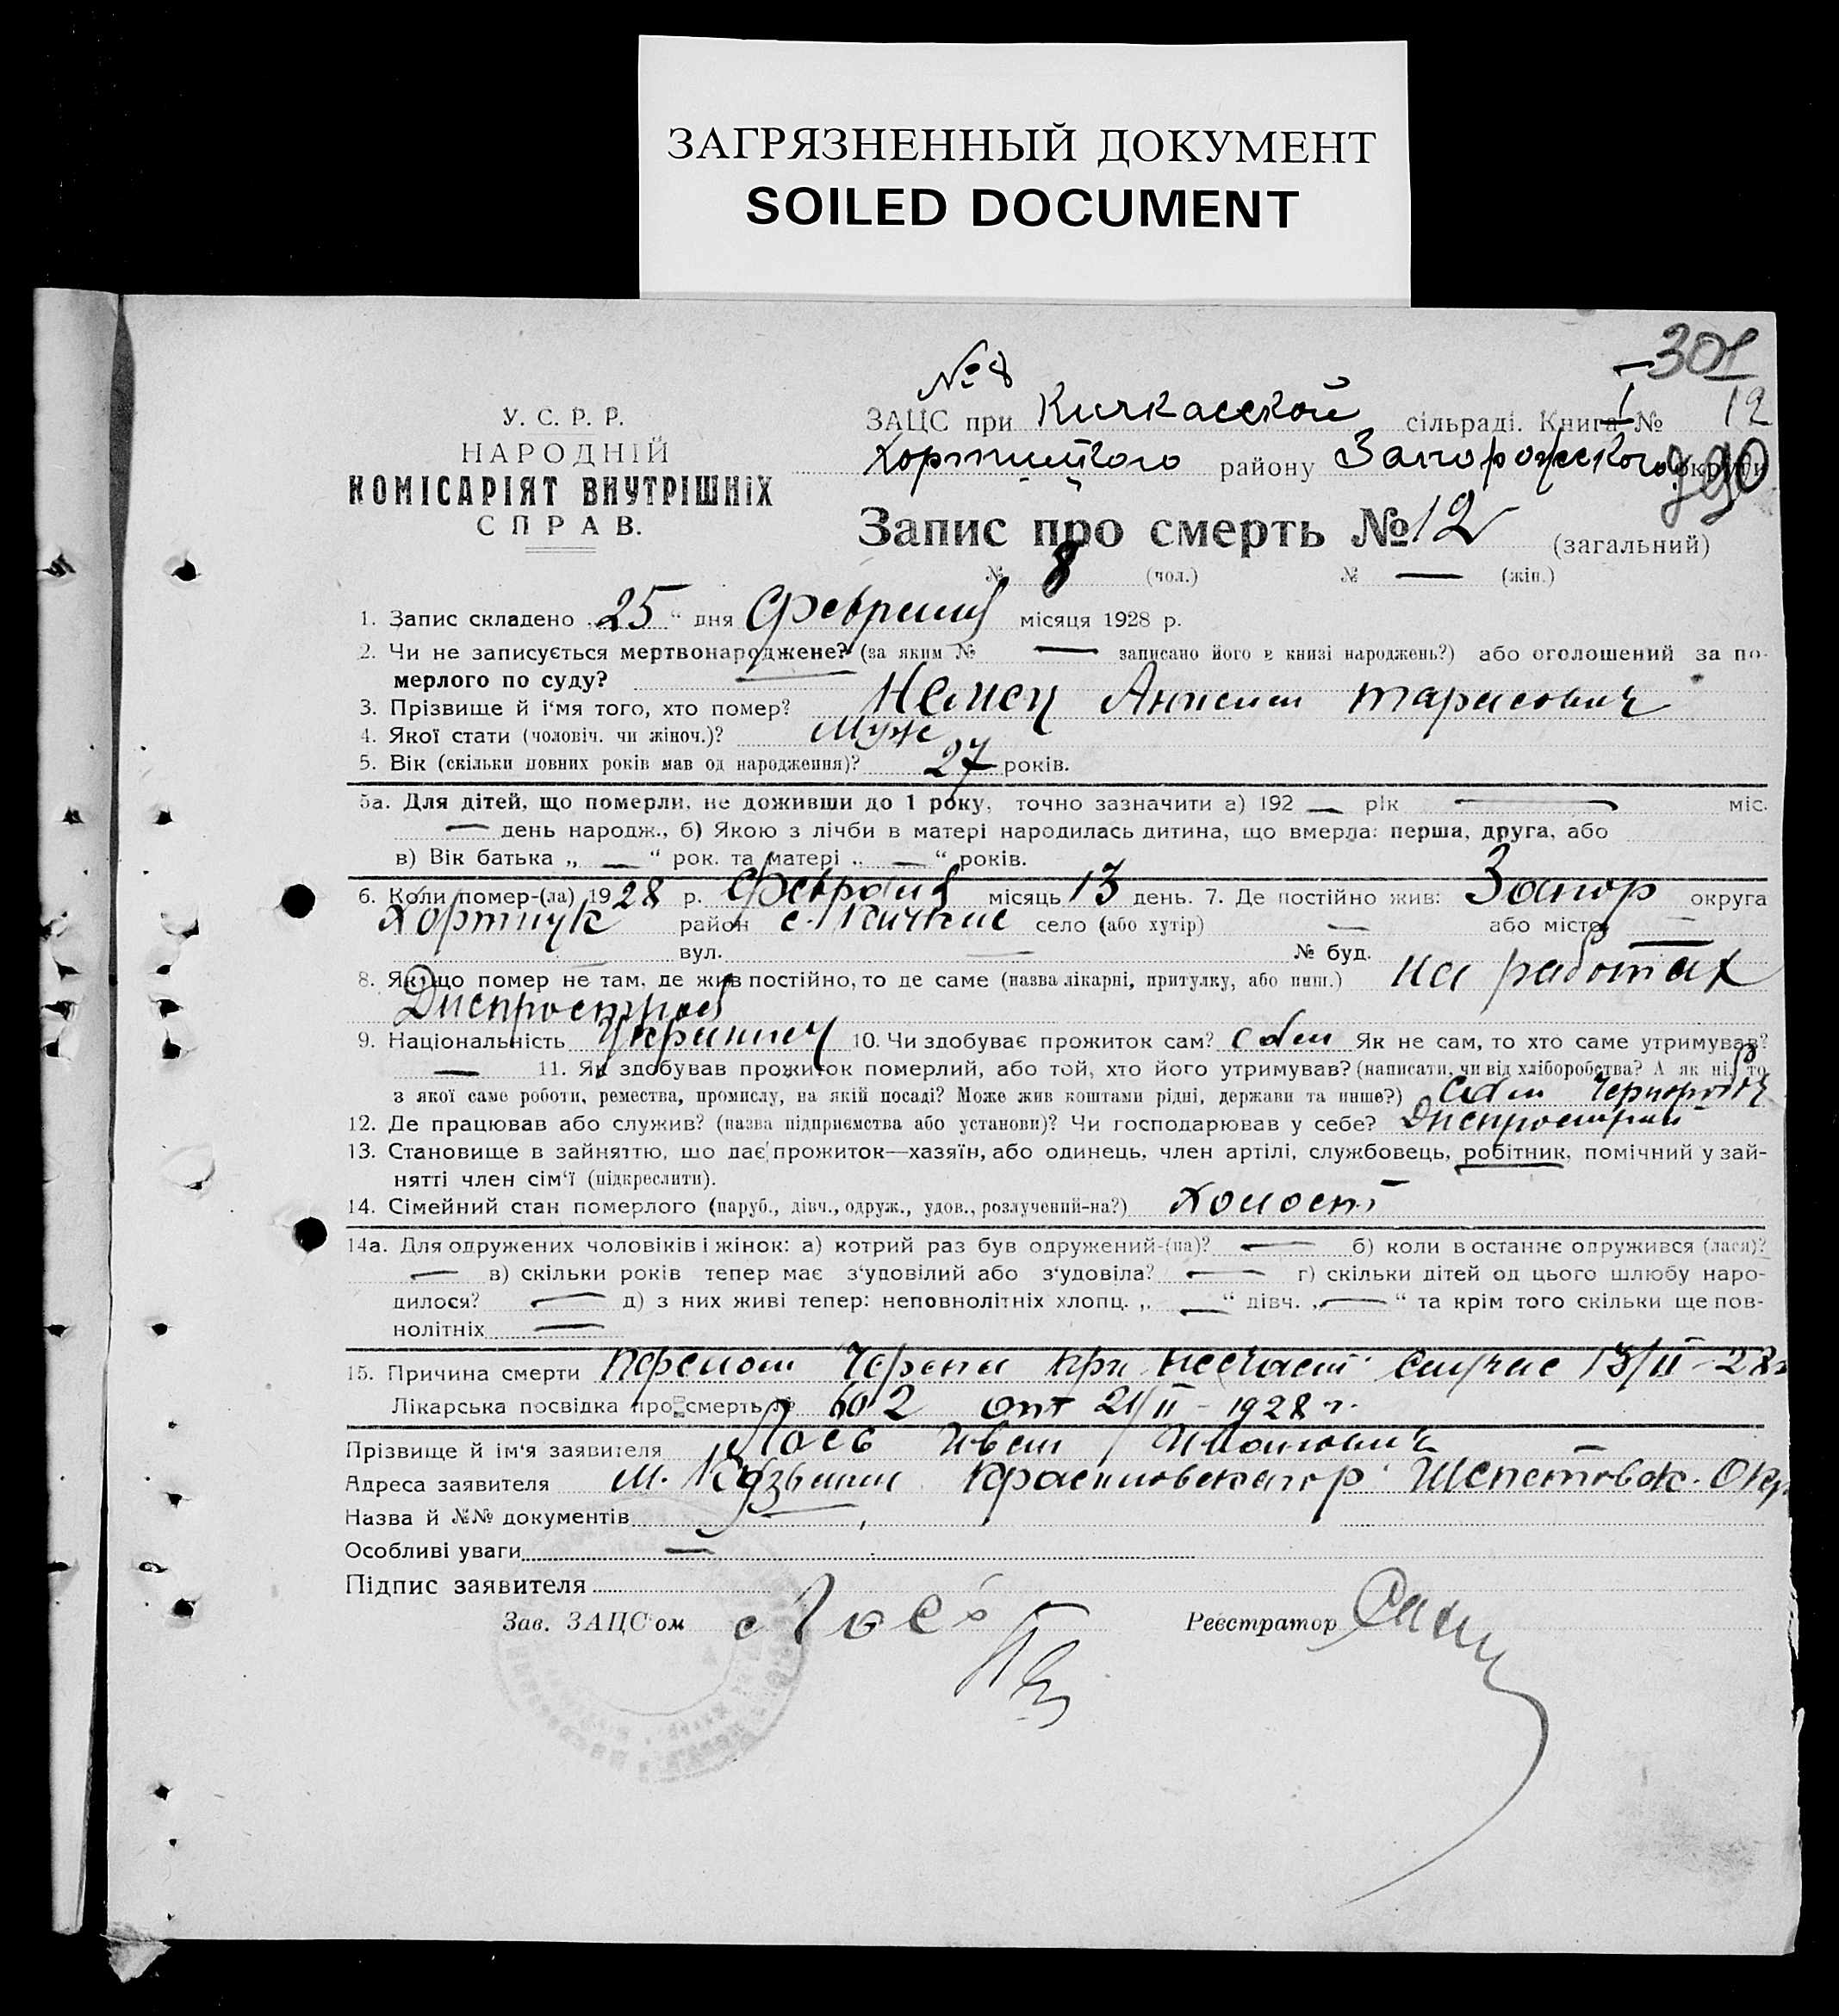 ЗАГРЯЗНЕННЫЙ ДОКУМЕНТ
SOILED DOCUMENT
301
№ 8
У. С. Р. Р.
НАРОДНІЙ
КОМІСАРІЯТ ВНУТРІШНІХ
СПРАВ.
ЗАЦС при Кичкасской сільраді. Книга I № 12
Хортицкого району Запорожского округи
Запис про смерть № 12 (загальний)
№ 8 (чол.) № — (жін.)
1. Запис складено „25“ дня Февраля місяця 1928 р.
2. Чи не записується мертвонароджене? (за яким № — записано його в книзі народжень?) або оголошений за по-
мерлого по суду? —
3. Прізвище й і'мя того, хто помер? Немец Тарасович
4. Якої стати (чоловіч. чи жіноч.)? Муж
5. Вік (скільки повних років мав од народження)? 27 років.
5а. Для дітей, що померли, не доживши до 1 року, точно зазначити а) 192 — рік — міс.
— день народж., б) Якою з лічби в матері народилась дитина, що вмерла: перша, друга, або
в) Вік батька „ — “ рок. та матері „ — “ років.
6. Коли помер-(ла) 1928 р. Февраля місяць 13 день. 7. Де постійно жив: Запор округа
Хортицк район с. Кичкас село (або хутір) — або місто —
вул. — № буд. —
8. Якщо помер не там, де жив постійно, то де саме (назва лікарні, притулку, або инш.) на работах
Днепрострой
9. Національність Украинец 10. Чи здобуває прожиток сам? сам Як не сам, то хто саме утримував?
— 11. Як здобував прожиток померлий, або той, хто його утримував? (написати, чи від хліборобства? А як ні, то
з якої саме роботи, ремества, промислу, на якій посаді? Може жив коштами рідні, держави та инше?) сам чернороб
12. Де працював або служив? (назва підприємства або установи)? Чи господарював у себе? Днепрострой
13. Становище в зайняттю, що дає прожиток—хазяїн, або одинець, член артілі, службовець, робітник, помічний у зай-
нятті член сім'ї (підкреслити).
14. Сімейний стан померлого (паруб., дівч., одруж., удов., розлучений-на?) Холост
14а. Для одружених чоловіків і жінок: а) котрий раз був одружений-(на)? — б) коли востаннє одружився (лася)?
— в) скільки років тепер має з'удовілий або з'удовіла? — г) скільки дітей од цього шлюбу наро-
дилося? — д) з них живі тепер: неповнолітніх хлопц. „ — “ дівч. „ — “ та крім того скільки ще пов-
нолітніх —
15. Причина смерти Перелом Черепа при несчаст. случае 13/II-28г
Лікарська посвідка про смерть № 602 от 21/II-1928 г.
Прізвище й ім'я заявителя Лось Иван
Адреса заявителя м. Кузьмин Шепетовск. Окр
Назва й №№ документів
Особливі уваги —
Підпис заявителя
Зав. ЗАЦС'ом Лось Реєстратор